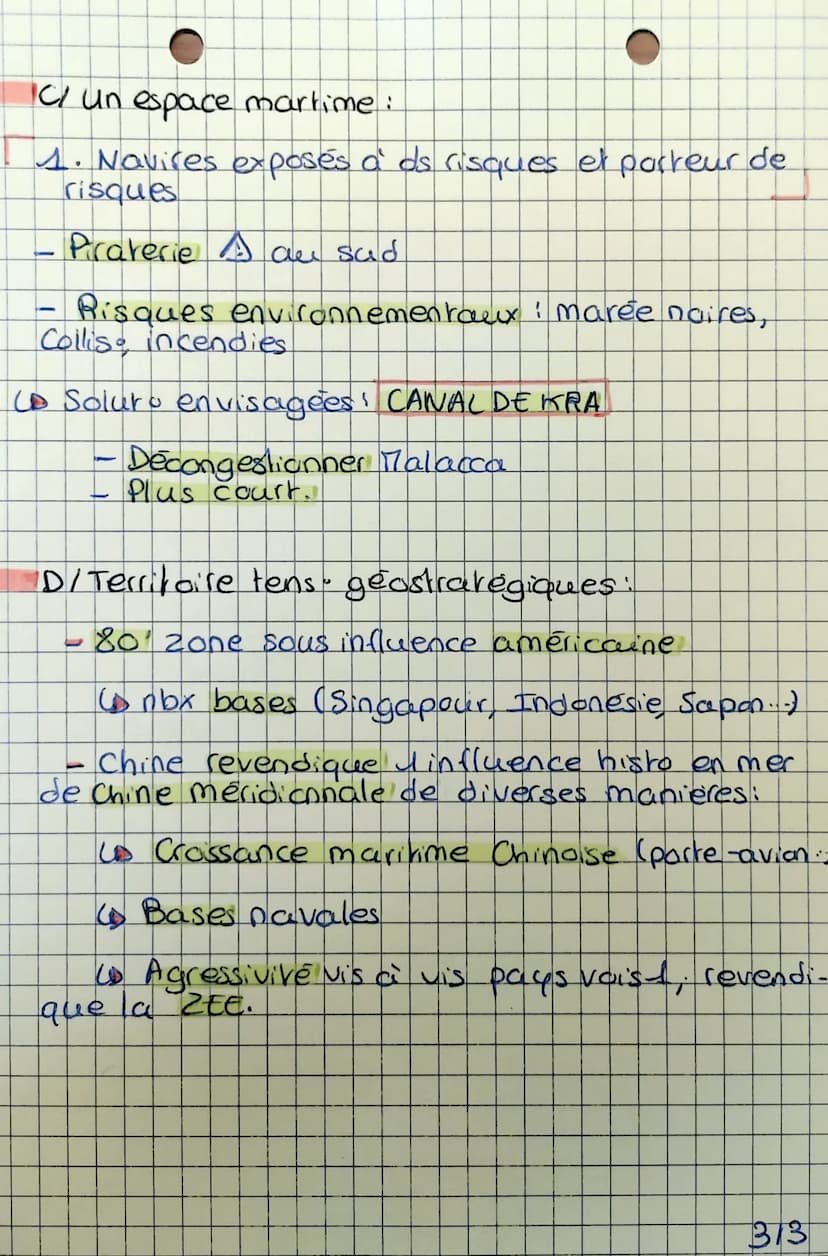 C/ Un espace martime :
1. Navires exposés à ds risques et porteur de
risques
- Piraterie ⚠ au sud
- Risques environnementaux : marée noires,
Collis°, incendies
↳ Solut° envisagées : CANAL DE KRA
- Décongestionner Malacca
- Plus court.
D/ Territoire tens° géostratégiques :
- 80' zone sous influence américaine
↳ nbx bases (Singapour, Indonésie, Japon...)
- Chine revendique 1 influence histo en mer
de Chine méridionnale de diverses manières :
↳ Croissance maritime Chinoise (porte-avion..
↳ Bases navales
↳ Agressivité vis à vis pays vois1, revendi-
que la ZEE.
3/3